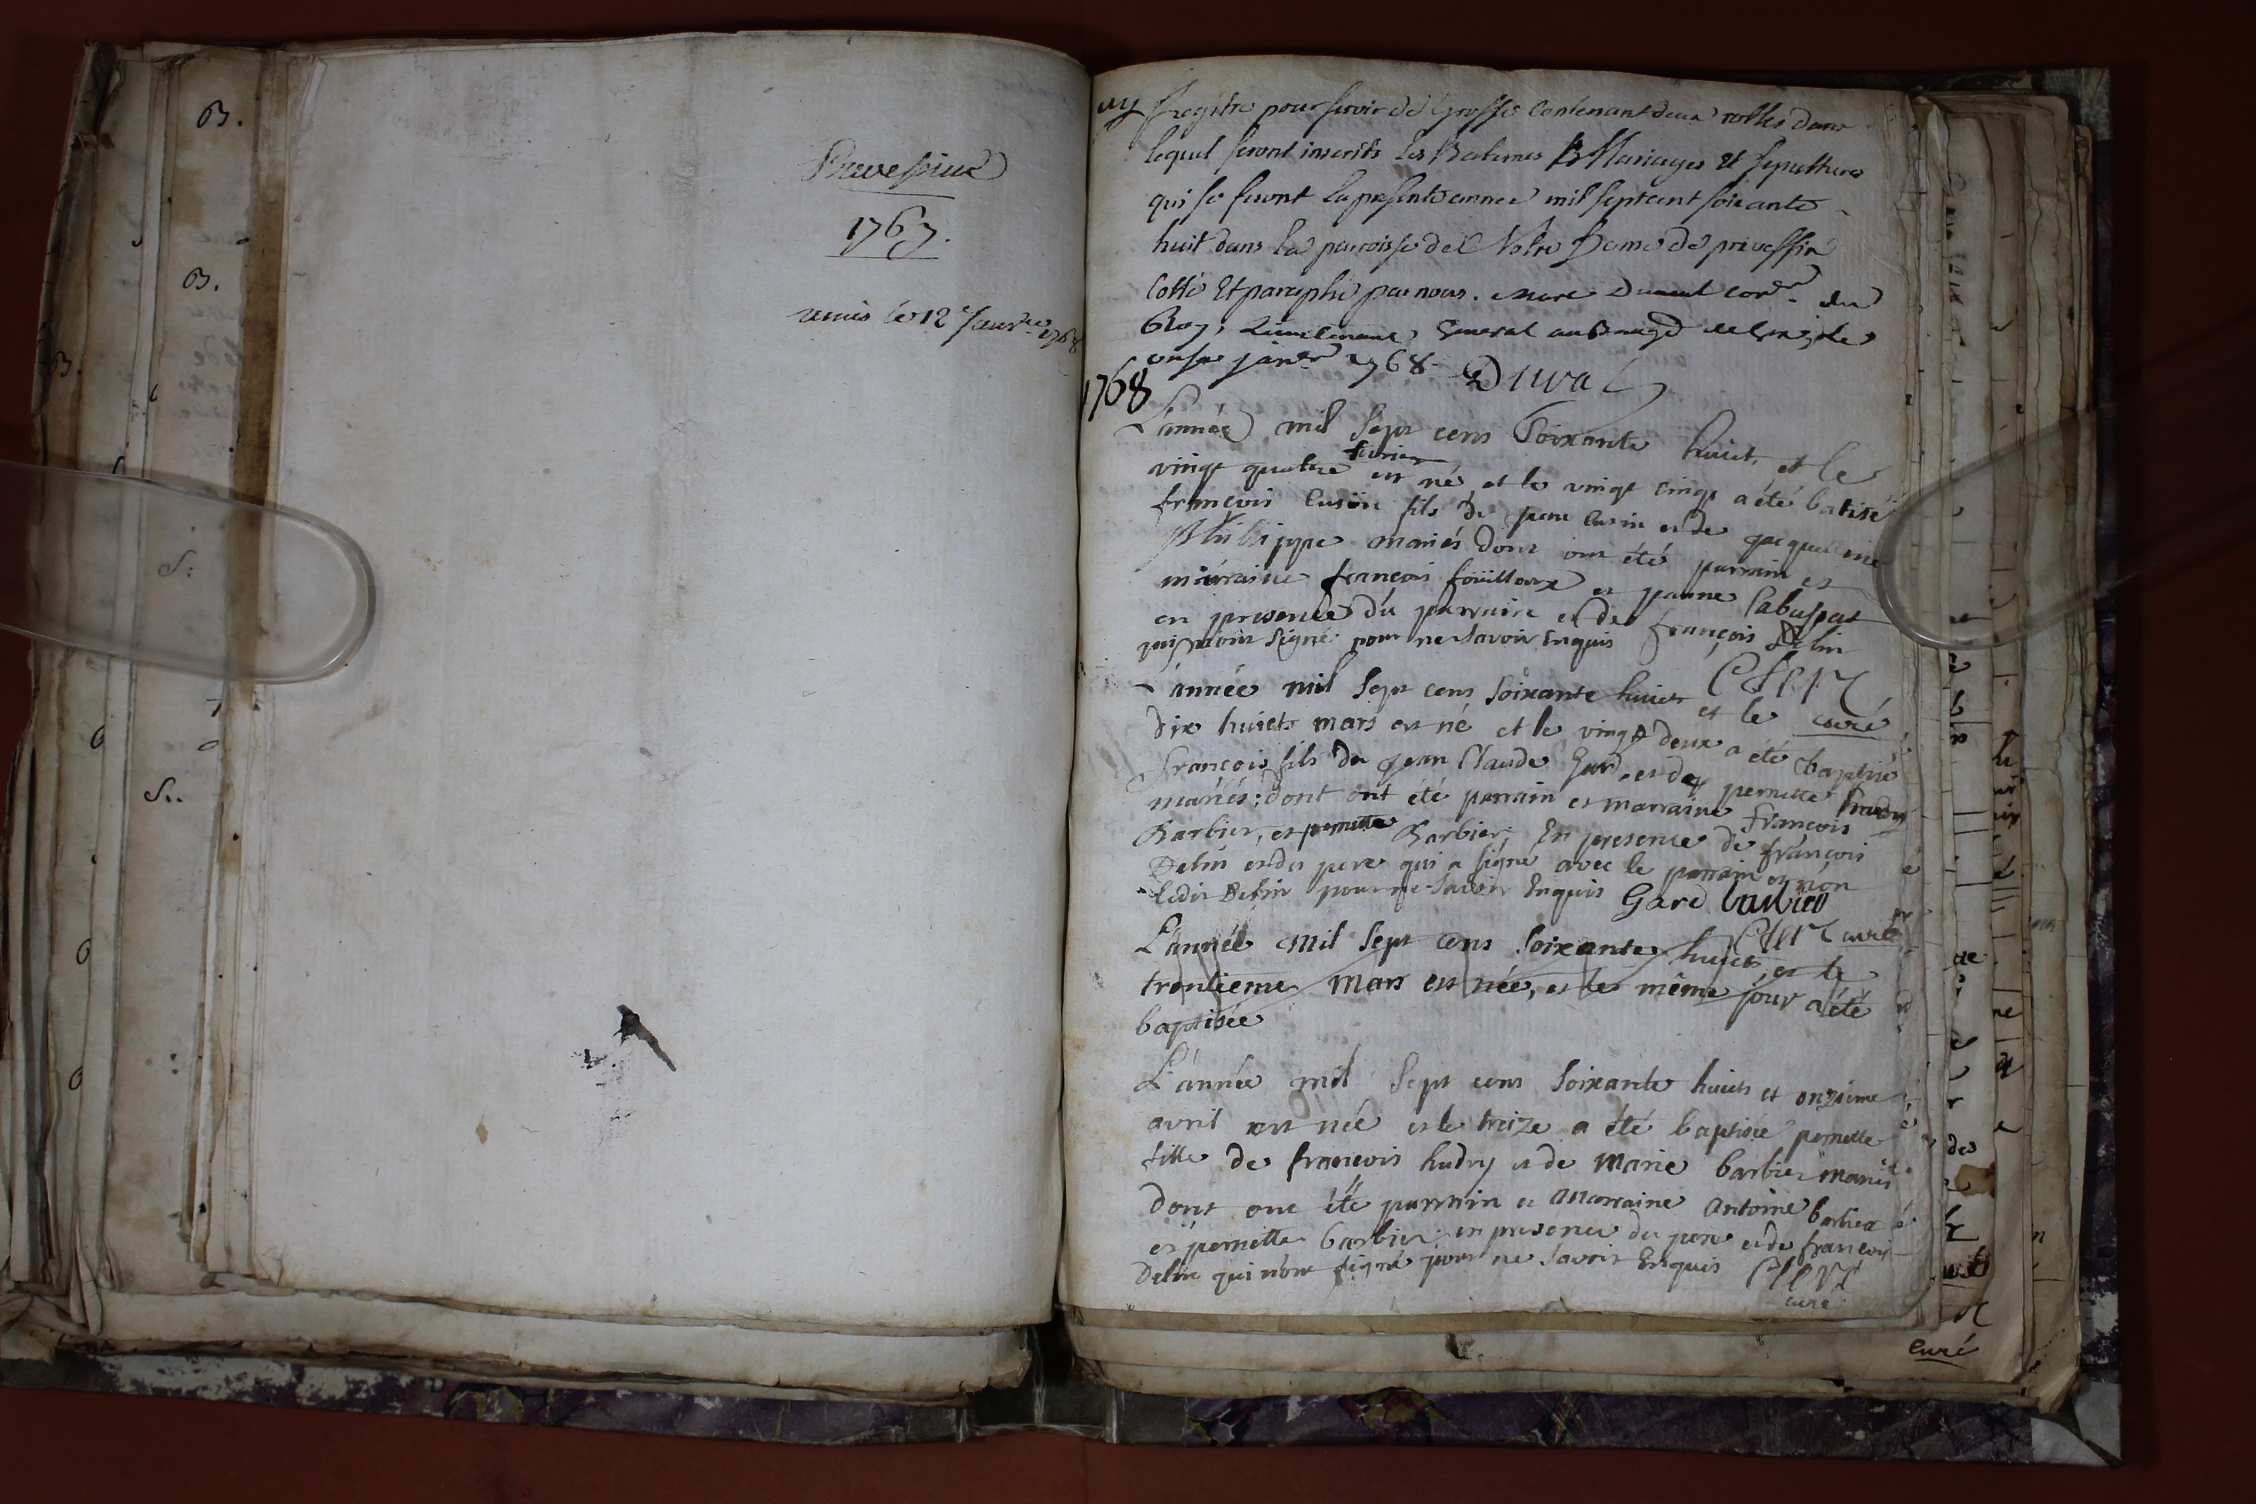 B.
B.
B.
S:
S..
Prevessin
1767.
remis le 12 Janvier 1768
Registre pour servir de Grosse Contenant deux rolles dans
lequel seront inscrits les Batemes Mariages Et sepultures
qui se feront la presente année mil septcent soixante
huit dans la paroisse de Notre Dame de privessin
Cotté Et paraphé par nous. Marc Duval Con.er du
Roy, Lieutenant General au Baage de Gex, le
onse janer 1768. Duval
1768
L'année mil sept cens Soixante huict, et le
vingt quatre fevrier est né et le vingt cinq a été batisé
françois Cusin fils de jean Cusin et de jacqueline
Philippe mariés dont ont été parrain et
marraine françois foüilloux et jeanne
en presence du parrain et de françois Delin
qui n'ont signé pour ne savoir Enquis
curé
L'année mil sept cens soixante huict et le
dix huict mars est né et le vingt deux a été baptisé
François fils de jean Claude Gard, et de pernette hudry
mariés; dont ont été parrain et marraine François
Barbier, et pernette Barbier, En presence de françois
Delin et du pere qui a signé avec le parrain et non
ledit Delin pour ne savoir Enquis Gard
curé
L'année mil sept cens soixante huict, et le
trentieme mars est née, et le même jour a été
baptisée
L'année mil sept cens soixante huict et onzieme
avril est née et le treize a été baptisée pernette
fille de françois hudry et de Marie barbier mariés
dont ont été parrain et marraine antoine barbier
et pernette barbier en presence du pere et de françois
Delin qui n'ont signé pour ne savoir Enquis
curé
curé